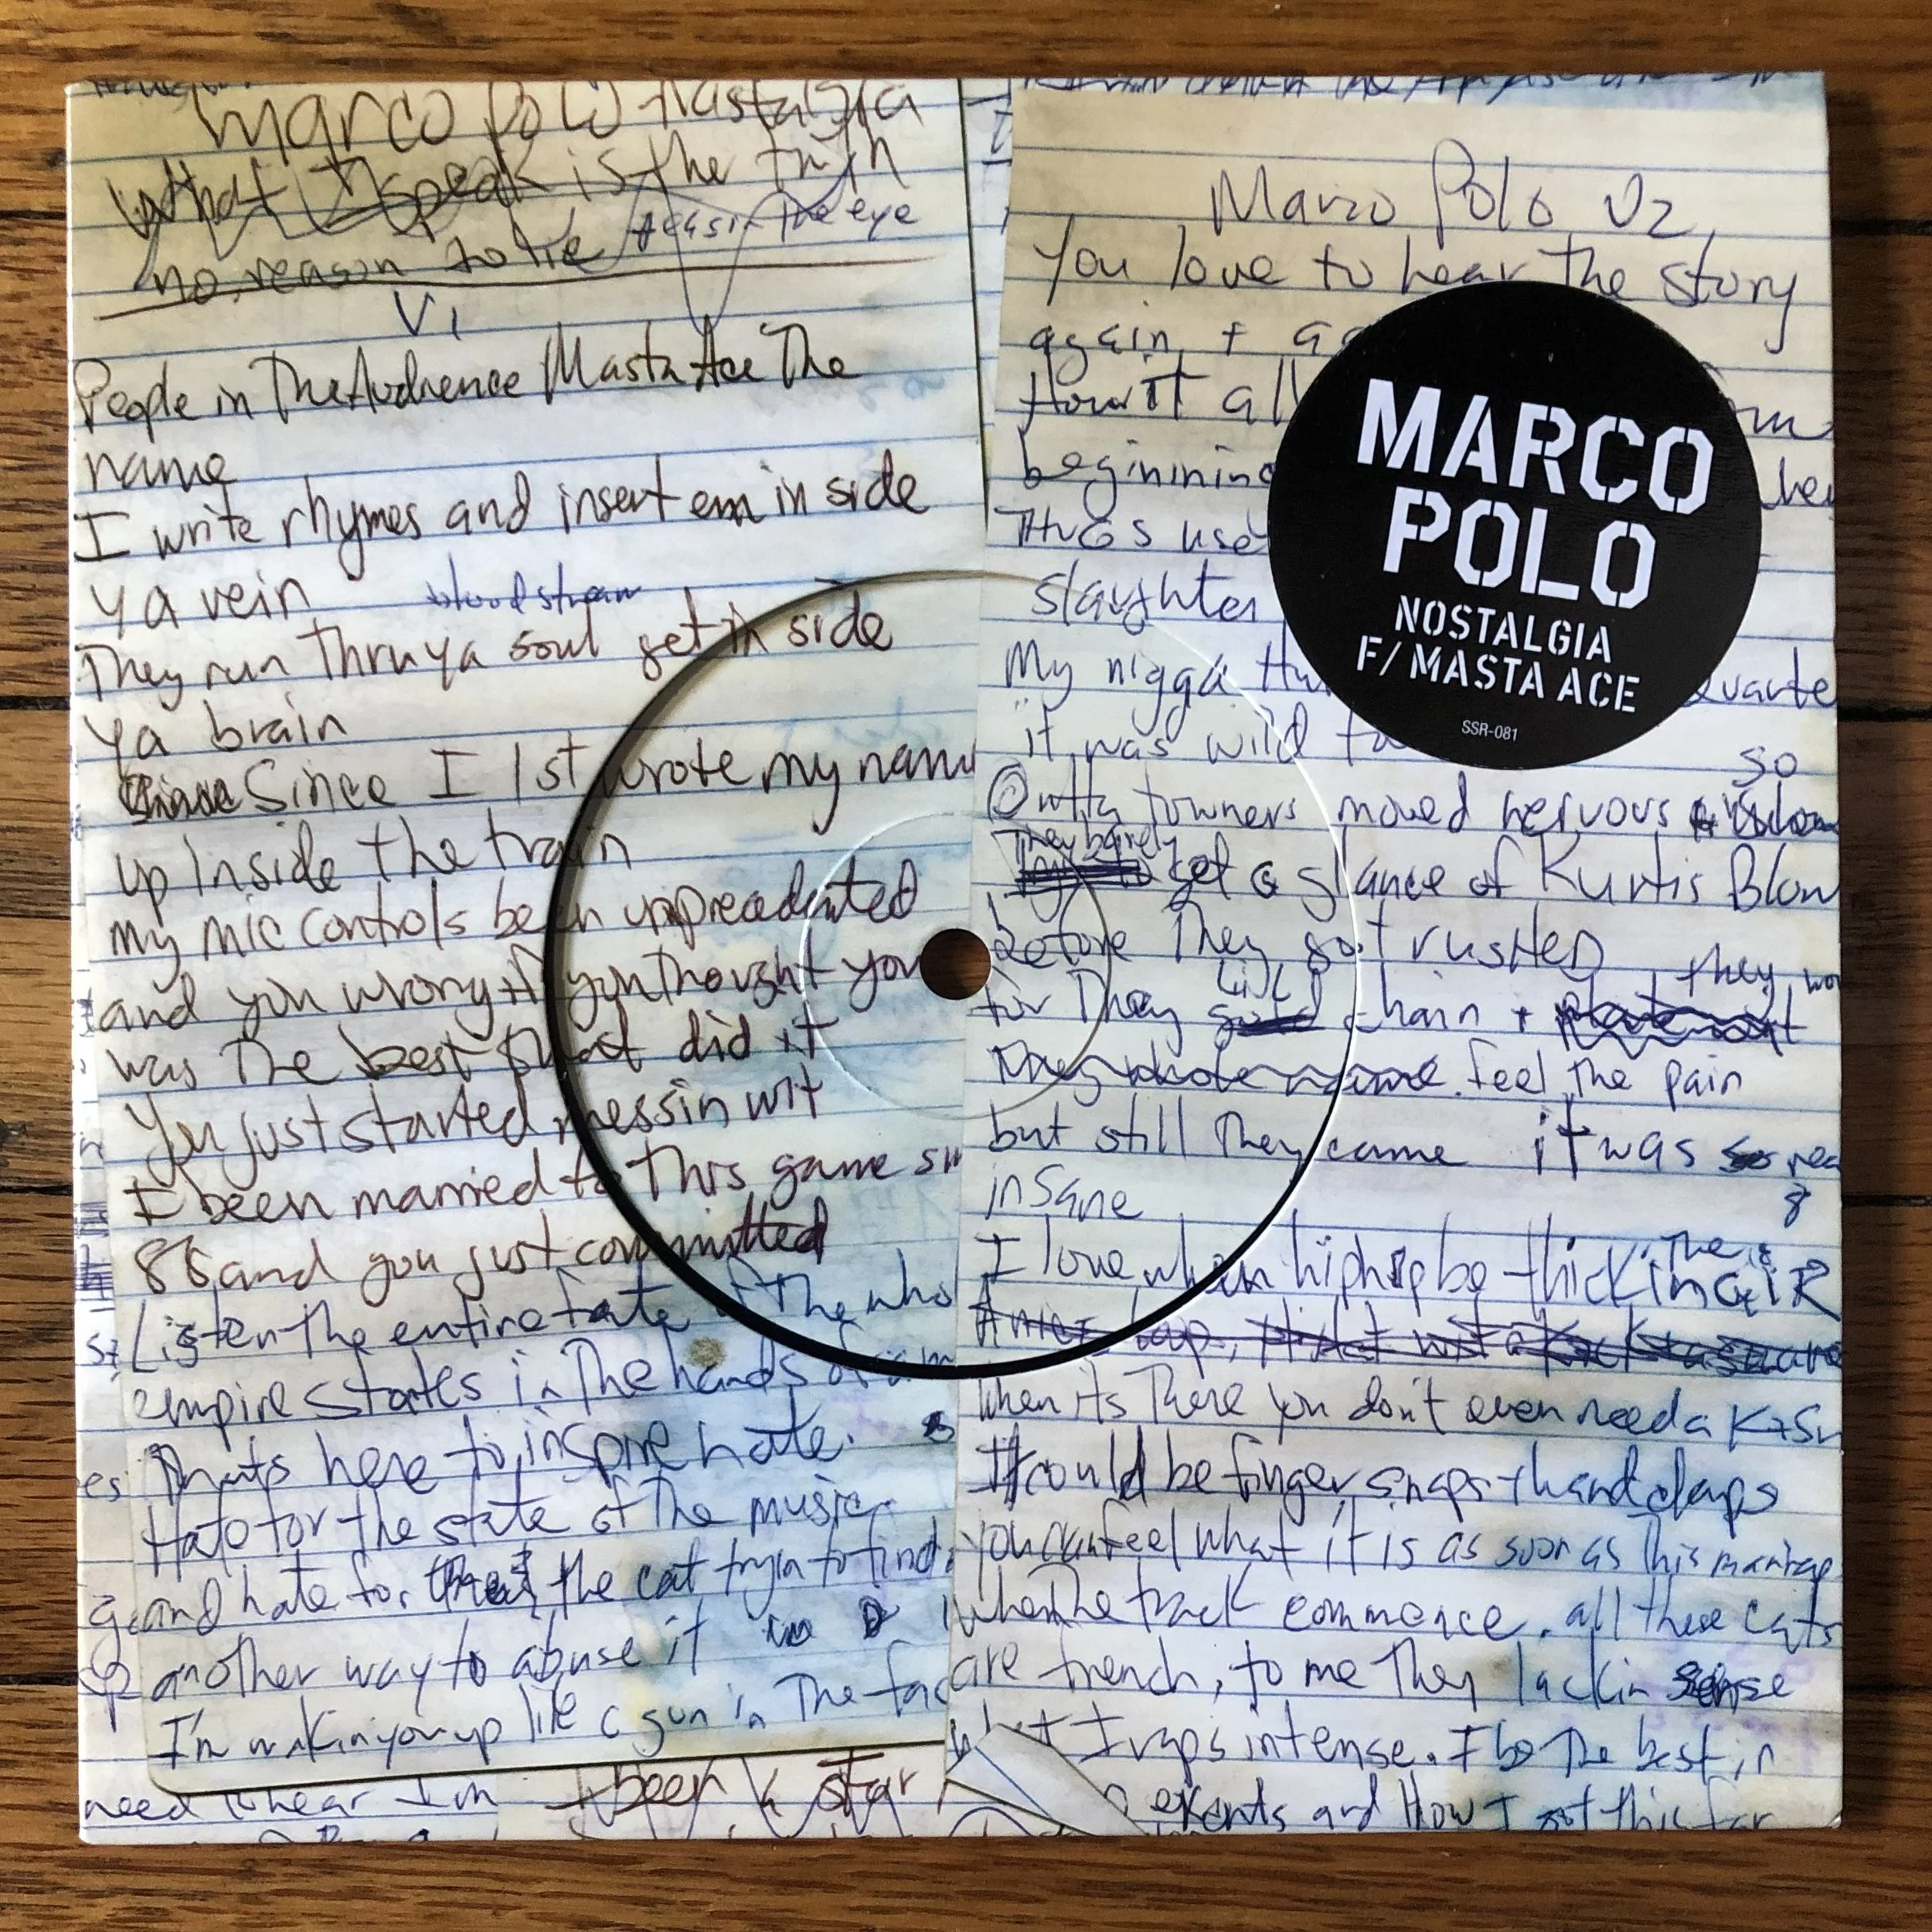 Marco Polo Nastalgia
What I speak is the truth
no reason to lie tears in the eye
V1
People in The Audience Masta Ace The
name
I write rhymes and insert em in side
ya vein bloodstream
They run thru ya soul get in side
ya brain
Since I 1st wrote my name
up inside the train
my mic controls been unprecedented
and you wrong if you thought you
was the best that did it
You just started messin wit
I been married to this game
86 and you just committed
Listen the entire fate of the who
empire states in The hands of a
Thats here to inspire hate.
Hate for the state of The music
and hate for the cat tryin to find
another way to abuse it
I'm wakin you up like a gun in The fac
need to hear Im
I been a star
Marco Polo V2
You love to hear the story
again +
How it all
beginining
THUGS use
slaughter
My nigga
it was wild
so
Outta towners moved nervous
They barely
get a glance of Kurtis Blow
before They got rusHeD
they wo
for They chain +
They whole name feel the pain
but still They came it was so
insane
I love when hiphop be thick in the aiR
when its There you don't even need a K+Sn
It could be finger snaps + hand claps
you can feel what it is as soon as this man rap
when the track commence. all these cats
are french, to me They lackin sense
I raps intense. I be The best in
and How I got this far
MARCO
POLO
NOSTALGIA
F/ MASTA ACE
SSR-081